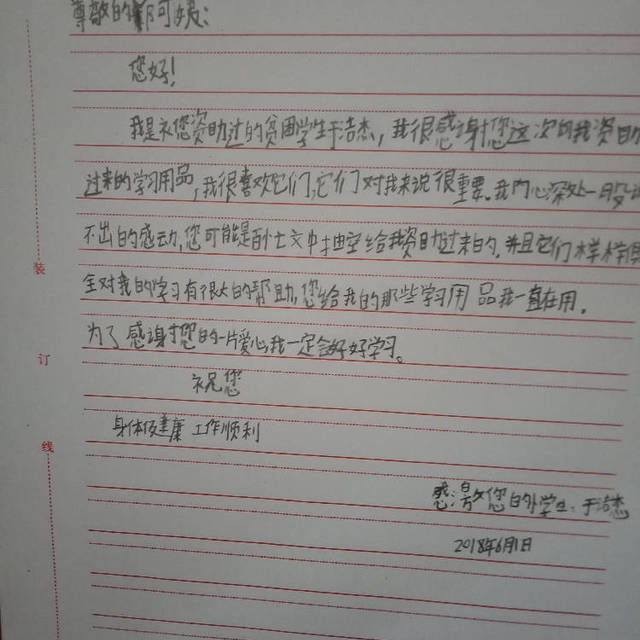 尊敬的阿姨:
您好!
我是被您资助过的贫困学生于洁杰,我很感谢您这次向我资助
过来的学习用品,我很喜欢它们,它们对我来说很重要。我内心深处一股说
不出的感动,您可能是百忙之中抽空给我资助过来的,并且它们样样俱
全对我的学习有很大的帮助,您给我的那些学习用品我一直在用。
为了感谢您的一片爱心我一定会好好学习。
祝您
身体健康 工作顺利
感激您的学生:于洁杰
2018年6月1日
装
订
线